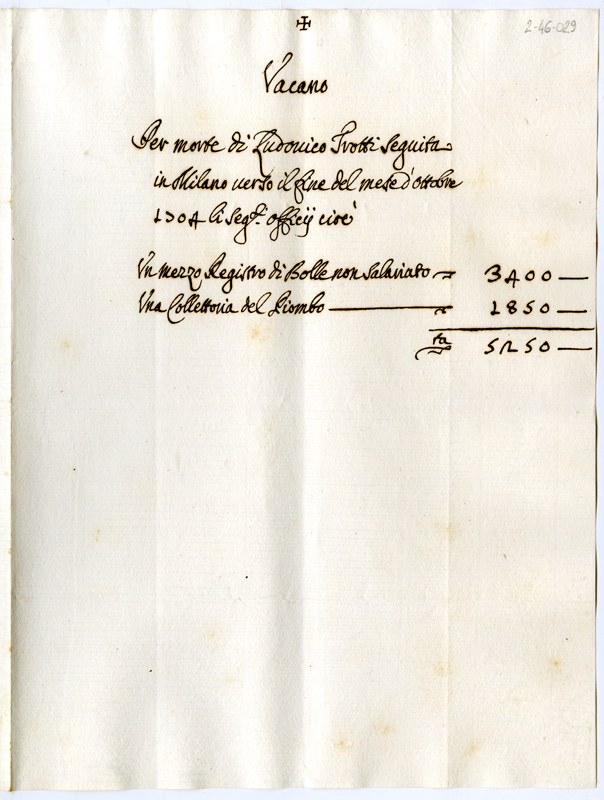 ✠
2-46-029
Vacano
Per morte di Ludovico Trotti seguita
in Milano verso il fine del mese d'ottobre
1704 li Seg.ti officij cioè
Un mezzo Registro di Bolle non Salariato — 3400 —
Una Collettoria del Piombo — 1850 —
5250 —